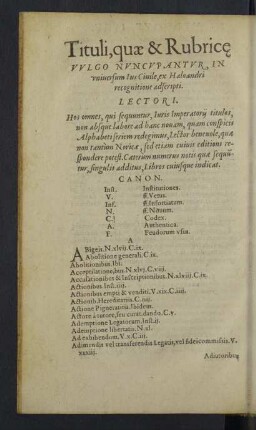 Tituli, quæ & Rubricę
VVLGO NVNCVPANTVR, IN
vniuersum Ius Ciuile, ex Haloandri
recognitione adscripti.
LECTORI.
Hos omnes, qui sequuntur, Iuris Imperatorij titulos,
non absque labore ad hanc nouam, quam conspicis
Alphabeti seriem redegimus, Lector beneuole, quæ
non tantùm Noricæ, sed etiam cuiuis editioni re-
spondere potest. Cæterùm numerus notis quæ sequũ-
tur, singulis additus, Libros cuiusque indicat.
CANON.
Inst. Institutiones.
V. ff Vetus.
Inf. ff Infortiatum.
N. ff Nouum.
C. Codex.
A. Authentica.
F. Feudorum vsus.
A
ABigeis. N. xlvii. C. ix.
Abolitione generali. C. ix.
Abolitionibus. Ibi.
Acceptilatione,bus. N. xlvj. C. viii.
Accusationibus & inscriptionibus. N. xlviii. C. ix
Actionibus. Inst. iiii.
Actionibus empti & venditi. V. xix. C. iiii.
Actionib. Hereditariis. C. iiii.
Actione Pigneratitia. Ibidem.
Actore à tutore, seu curat. dando. C. v.
Ademptione Legatorum. Inst. ij.
Ademptione libertatis. N. xl.
Ad exhibendum. V. x. C. iii.
Adimendis vel transferendis Legatis, vel fideicommissis. V.
xxxiiij.